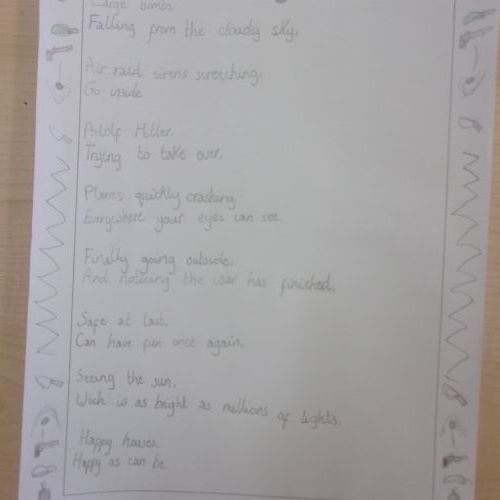 Large bombs
Falling from the cloudy sky,
Air raid sirens screeching,
Go inside
Adolf Hitler.
Trying to take over.
Planes quickly crashing
Everywhere your eyes can see
Finally going outside.
And noticing the war has finished.
Safe at last,
Can have fun once again,
Seeing the sun,
Wich is as bright as millions of lights.
Happy houses,
Happy as can be